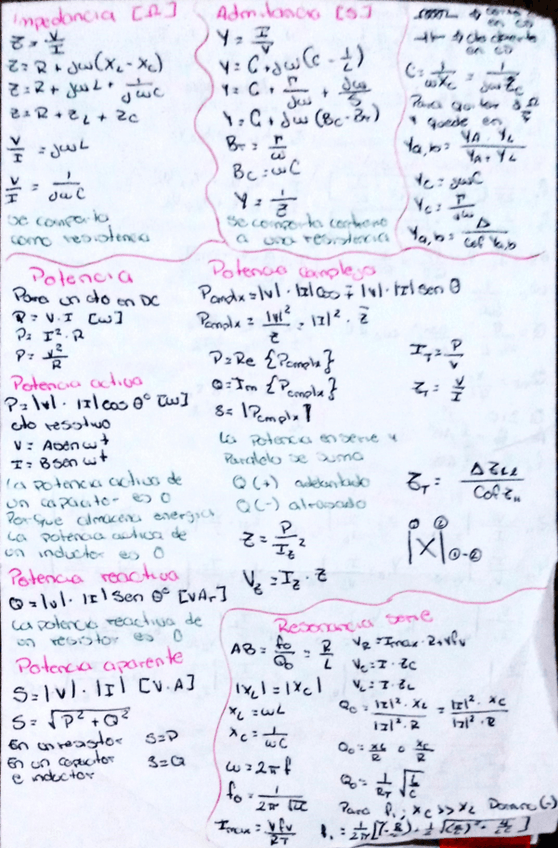 Impedancia [Ω]
Z = V/I
Z = R + jω(XL - XC)
Z = R + jωL + 1/jωC
Z = R + ZL + ZC
V/I = jωL
V/I = 1/jωC
se comporta
como resistencia
Admitancia [S]
Y = I/V
Y = G + jω(C - 1/L)
Y = G + Γ/jω + jω/S
Y = G + jω(BC - BΓ)
BΓ = Γ/ω
BC = ωC
Y = 1/Z
se comporta contrario
a una resistencia
en CD
cto abierto
en CD
C = 1/ωXC = 1/jωZC
Para quitar
y quede en
Ya,b = YA · YL / YA + YL
YC = jωC
YΓ = Γ/jω
Ya,b = Δ / Cof Ya,b
Potencia
Para un cto en DC
P = V · I [W]
P = I² · R
P = V²/R
Potencia activa
P = |V| · |I| cos θ° [W]
cto resistivo
V = A sen ωt
I = B sen ωt
La potencia activa de
un capacitor es 0
Porque almacena energia
La potencia activa de
un inductor es 0
Potencia reactiva
Q = |V| · |I| sen θ° [VAr]
La potencia reactiva de
un resistor es 0
Potencia aparente
S = |V| · |I| [V·A]
S = √P² + Q²
En un resistor S=P
En un capacitor S=Q
e inductor
Potencia compleja
Pcmplx = |V| · |I| cos ∓ |V| · |I| sen θ
Pcmplx = |V|²/Z = |I|² · Z
P = Re {Pcmplx}
Q = Im {Pcmplx}
S = |Pcmplx|
La potencia en serie y
Paralelo se suma
Q (+) adelantado
Q (-) atrasado
Z = P/IZ²
VZ = IZ · Z
IT = P/V
ZT = V/I
ZT = ΔZLL / Cof Z11
① ②
|X| ①-②
Resonancia serie
AB = fo/Qo = R/L
|XL| = |XC|
XL = ωL
XC = 1/ωC
ω = 2πf
fo = 1/2π√LC
Imax = Vfv/RT
VC = I · ZC
VL = I · ZL
Qo = |I|² · XL / |I|² · R = |I|² · XC / |I|² · R
Qo = XL/R o XC/R
Qo = 1/RT √L/C
Para f1; XC >> XL Domina (-)